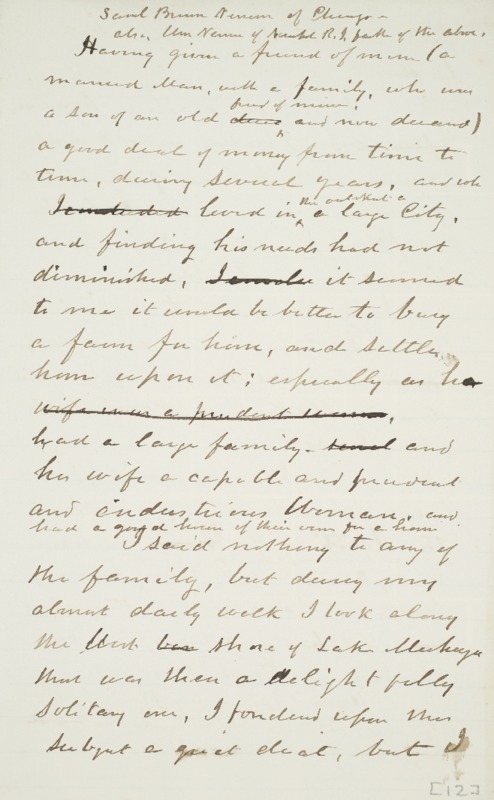 Saml Brown Newson of Chicago -
also Wm Newson of R. I. both of the above.
Having given a friend of mine (a
married Man, with a family, who was
friend of mine,
a son of an old and now deceased)
a good deal of money from time to
time, during several years, and who
the outskirt a
I intended lived in a large City,
and finding his needs had not
diminished, it seemed
to me it would be better to buy
a farm for him, and settle
him upon it; especially as he
wife was a prudent woman,
had a large family - and
his wife a capable and prudent
and industrious Woman, and
had a good home of their own for a home
I said nothing to any of
the family, but during my
almost daily walk I took along
the West shore of Lake Michigan
that was then a delightfully
solitary one, I pondered upon this
subject a great deal, but I
[12]